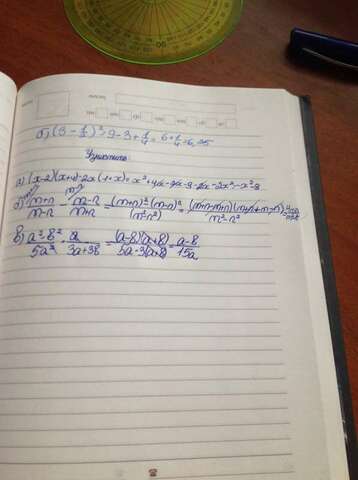 б) (3 - 1/2)² = 9 - 3 + 1/4 = 6 + 1/4 = 6,25
Упростить:
а) (x-2)(x+4)-2x(1+x) = x²+4x-2x-8-2x-2x²=-x²-8
б) m+n/m-n - m-n/m+n = (m+n)²-(m-n)²/(m²-n²) = (m+n-m+n)(m+n+m-n)/m²-n²
в) a²-8²/5a² · a/3a+38 = (a-8)(a+8)/5a·3(a+8) = a-8/15a